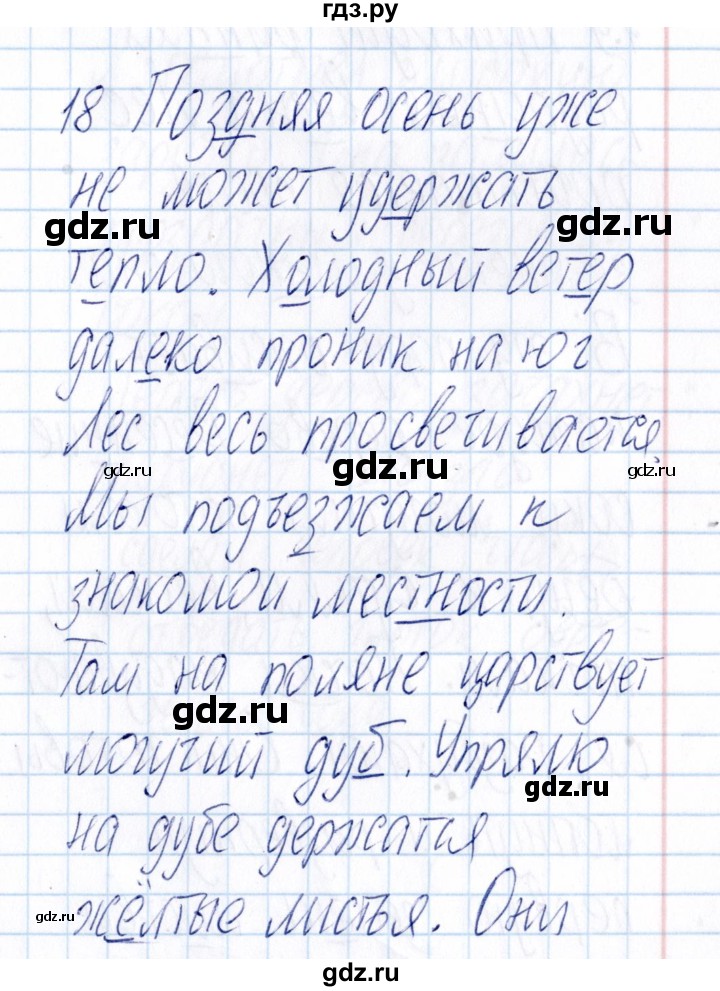 гдз.ру
18 Поздняя осень уже
не может удержать
gdz.ru
gdz.ru
тепло. Холодный ветер
далеко проник на юг
Лес весь просвечивается,
gdz.ru
gdz.ru
gdz.ru
Мы подъезжаем к
знакомой местности.
Там на поляне царствует
gdz.ru
могучий дуб. Упрямо
gdz.ru
на дубе держатся
жёлтые листья. Они
gdz.ru
gdz.ru
gdz.ru